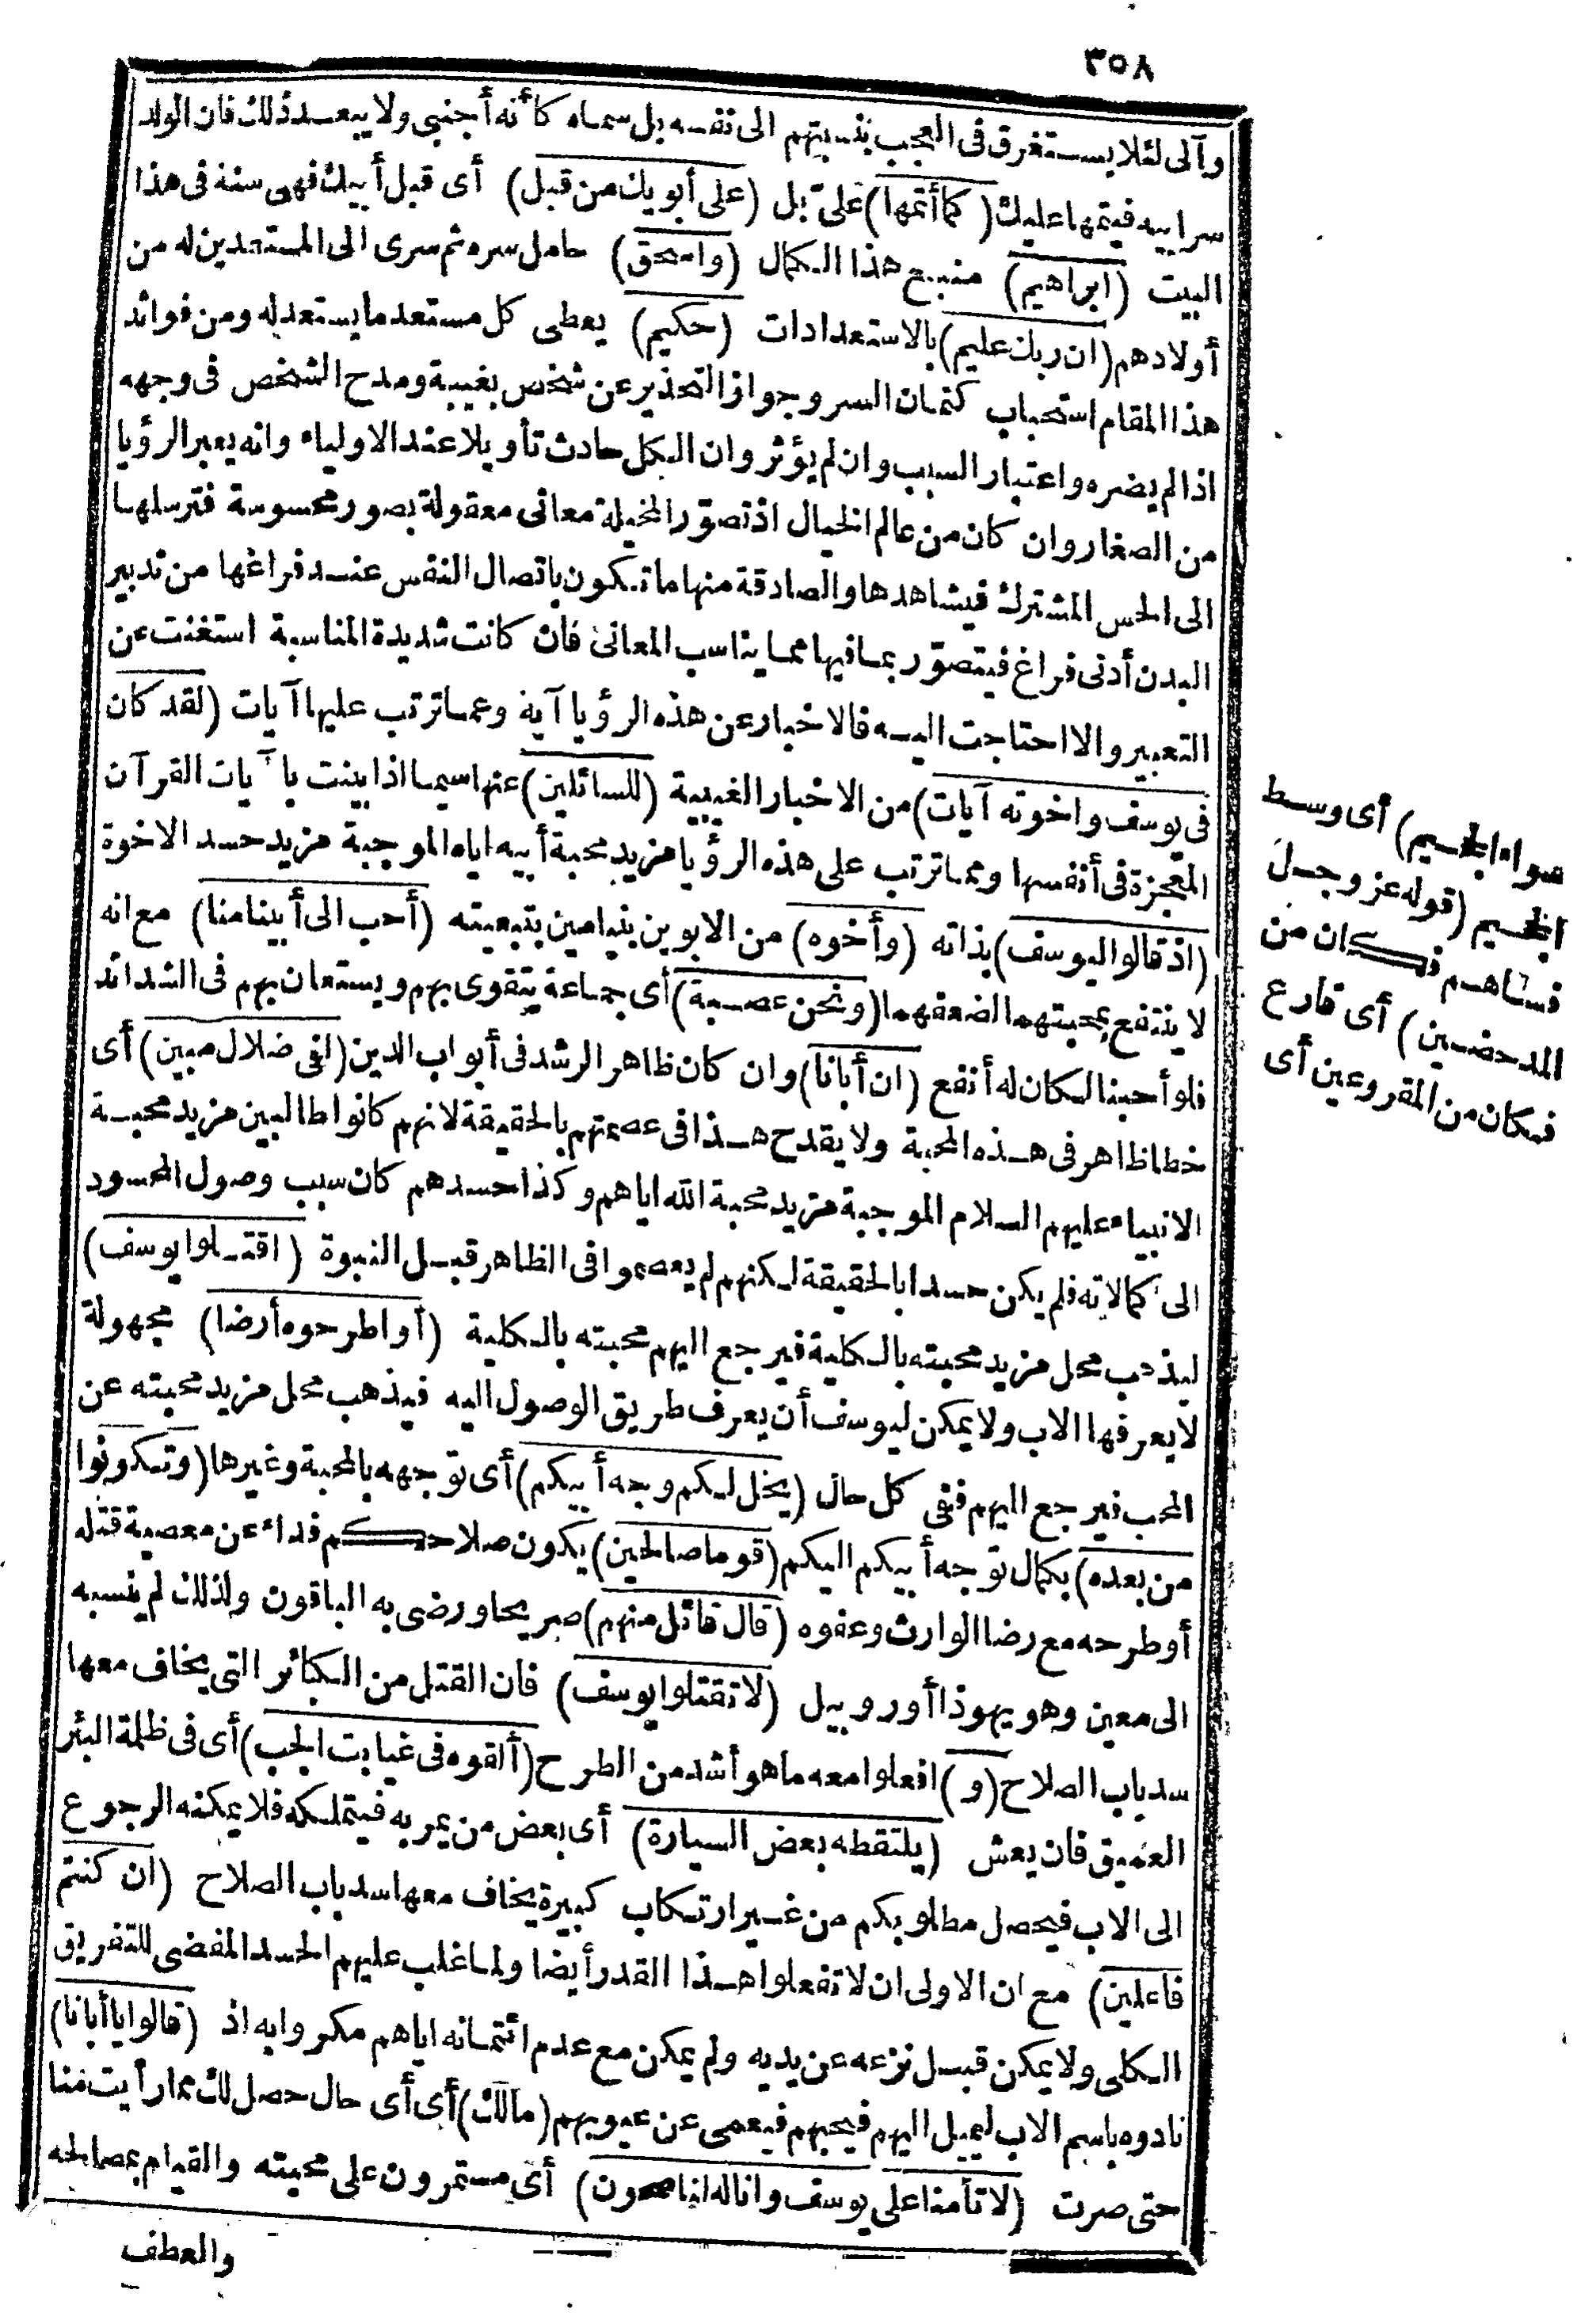 ٣٥٨
وآلى لئلا يستغرق فى العجب بنسبتهم الى نفسه بل سماه كأنه أجنبى ولا يبعد ذلك فان الولد
سر ابيه فيتمها عليك (كما أتمها) على بل (على أبويك من قبل) أى قبل أبيك فهى سنة فى هذا
البيت (ابراهيم) منبع هذا الكمال (واسحق) حامل سره ثم سرى الى المستعدين له من
أولادهم (ان ربك عليم) بالاستعدادات (حكيم) يعطى كل مستعد ما يستعد له ومن فوائد
هذا المقام استحباب كتمان السر وجواز التحذير عن شخص بغيبة ومدح الشخص فى وجهه
اذا لم يضره واعتبار السبب وان لم يؤثر وان الكل حادث تأويلا عند الاولياء وانه يعبر الرؤيا
من الصغار وان كان من عالم الخيال اذ تصوّر المخيلة معانى معقولة بصور محسوسة فترسلها
الى الحس المشترك فيشاهدها والصادقة منها ما تكون باتصال النفس عند فراغها من تدبير
البدن أدنى فراغ فيتصوّر بما فيها مما يناسب المعانى فان كانت شديدة المناسبة استغنت عن
التعبير والا احتاجت اليه فالاخبار عن هذه الرؤيا آية وعما ترتب عليها آيات (لقد كان
فى يوسف واخوته آيات) من الاخبار الغيبية (للسائلين) عنها سيما اذا بينت بآيات القرآن
المعجزة فى أنفسها ومما ترتب على هذه الرؤيا مزيد محبة أبيه اياه الموجبة مزيد حسد الاخوة
(اذ قالوا ليوسف) بذاته (وأخوه) من الابوين بنيامين بتبعيته (أحب الى أبينا منا) مع انه
لا ينتفع بمحبتهما لضعفهما (ونحن عصبة) أى جماعة يتقوى بهم ويستعان بهم فى الشدائد
فلو أحبنا لكان له أنفع (ان أبانا) وان كان ظاهر الرشد فى أبواب الدين (لفى ضلال مبين) أى
خطا ظاهر فى هذه المحبة ولا يقدح هذا فى عصمتهم بالحقيقة لانهم كانوا طالبين مزيد محبة
الانبياء عليهم السلام الموجبة مزيد محبة الله اياهم وكذا حسدهم كان سبب وصول المحسود
الى كمالاته فلم يكن حسدا بالحقيقة لكنهم لم يعصموا فى الظاهر قبل النبوة (اقتلوا يوسف)
ليذهب محل مزيد محبته بالكلية فيرجع اليهم محبته بالكلية (أو اطرحوه أرضا) مجهولة
لا يعرفها الاب ولا يمكن ليوسف أن يعرف طريق الوصول اليه فيذهب محل مزيد محبته عن
المحب فيرجع اليهم ففى كل حال (يخل لكم وجه أبيكم) أى توجهه بالمحبة وغيرها (وتكونوا
من بعده) بكمال توجه أبيكم اليكم (قوما صالحين) يكون صلاحكم فداء عن معصية قتله
أو طرحه مع رضا الوارث وعفوه (قال قائل منهم) صريحا ورضى به الباقون ولذلك لم ينسبه
الى معين وهو يهوذا أو روبيل (لا تقتلوا يوسف) فان القتل من الكبائر التى يخاف معها
سد باب الصلاح (و) افعلوا معه ما هو أشد من الطرح (ألقوه فى غيابت الجب) أى فى ظلمة البئر
العميق فان يعش (يلتقطه بعض السيارة) أى بعض من يمر به فيتملكه فلا يمكنه الرجوع
الى الاب فيحصل مطلوبكم من غير ارتكاب كبيرة يخاف معها سد باب الصلاح (ان كنتم
فاعلين) مع ان الاولى ان لا تفعلوا هذا القدر أيضا ولما غلب عليهم الحسد المفضى للتفريق
الكلى ولا يمكن قبل نزعه عن يديه ولم يمكن مع عدم ائتمانه اياهم مكروا به اذ (قالوا يا أبانا)
نادوه باسم الاب ليميل اليهم فيحبهم فيعمى عن عيوبهم (مالك) أى أى حال حصل لك مما رأيت منا
حتى صرت (لا تأمنا على يوسف وانا له لناصحون) أى مستمرون على محبته والقيام بمصالحه
والعطف
سواء الجحيم) أى وسط
الجحيم (قوله عز وجل
فساهم فكان من
المدحضين) أى قارع
فكان من المقروعين أى